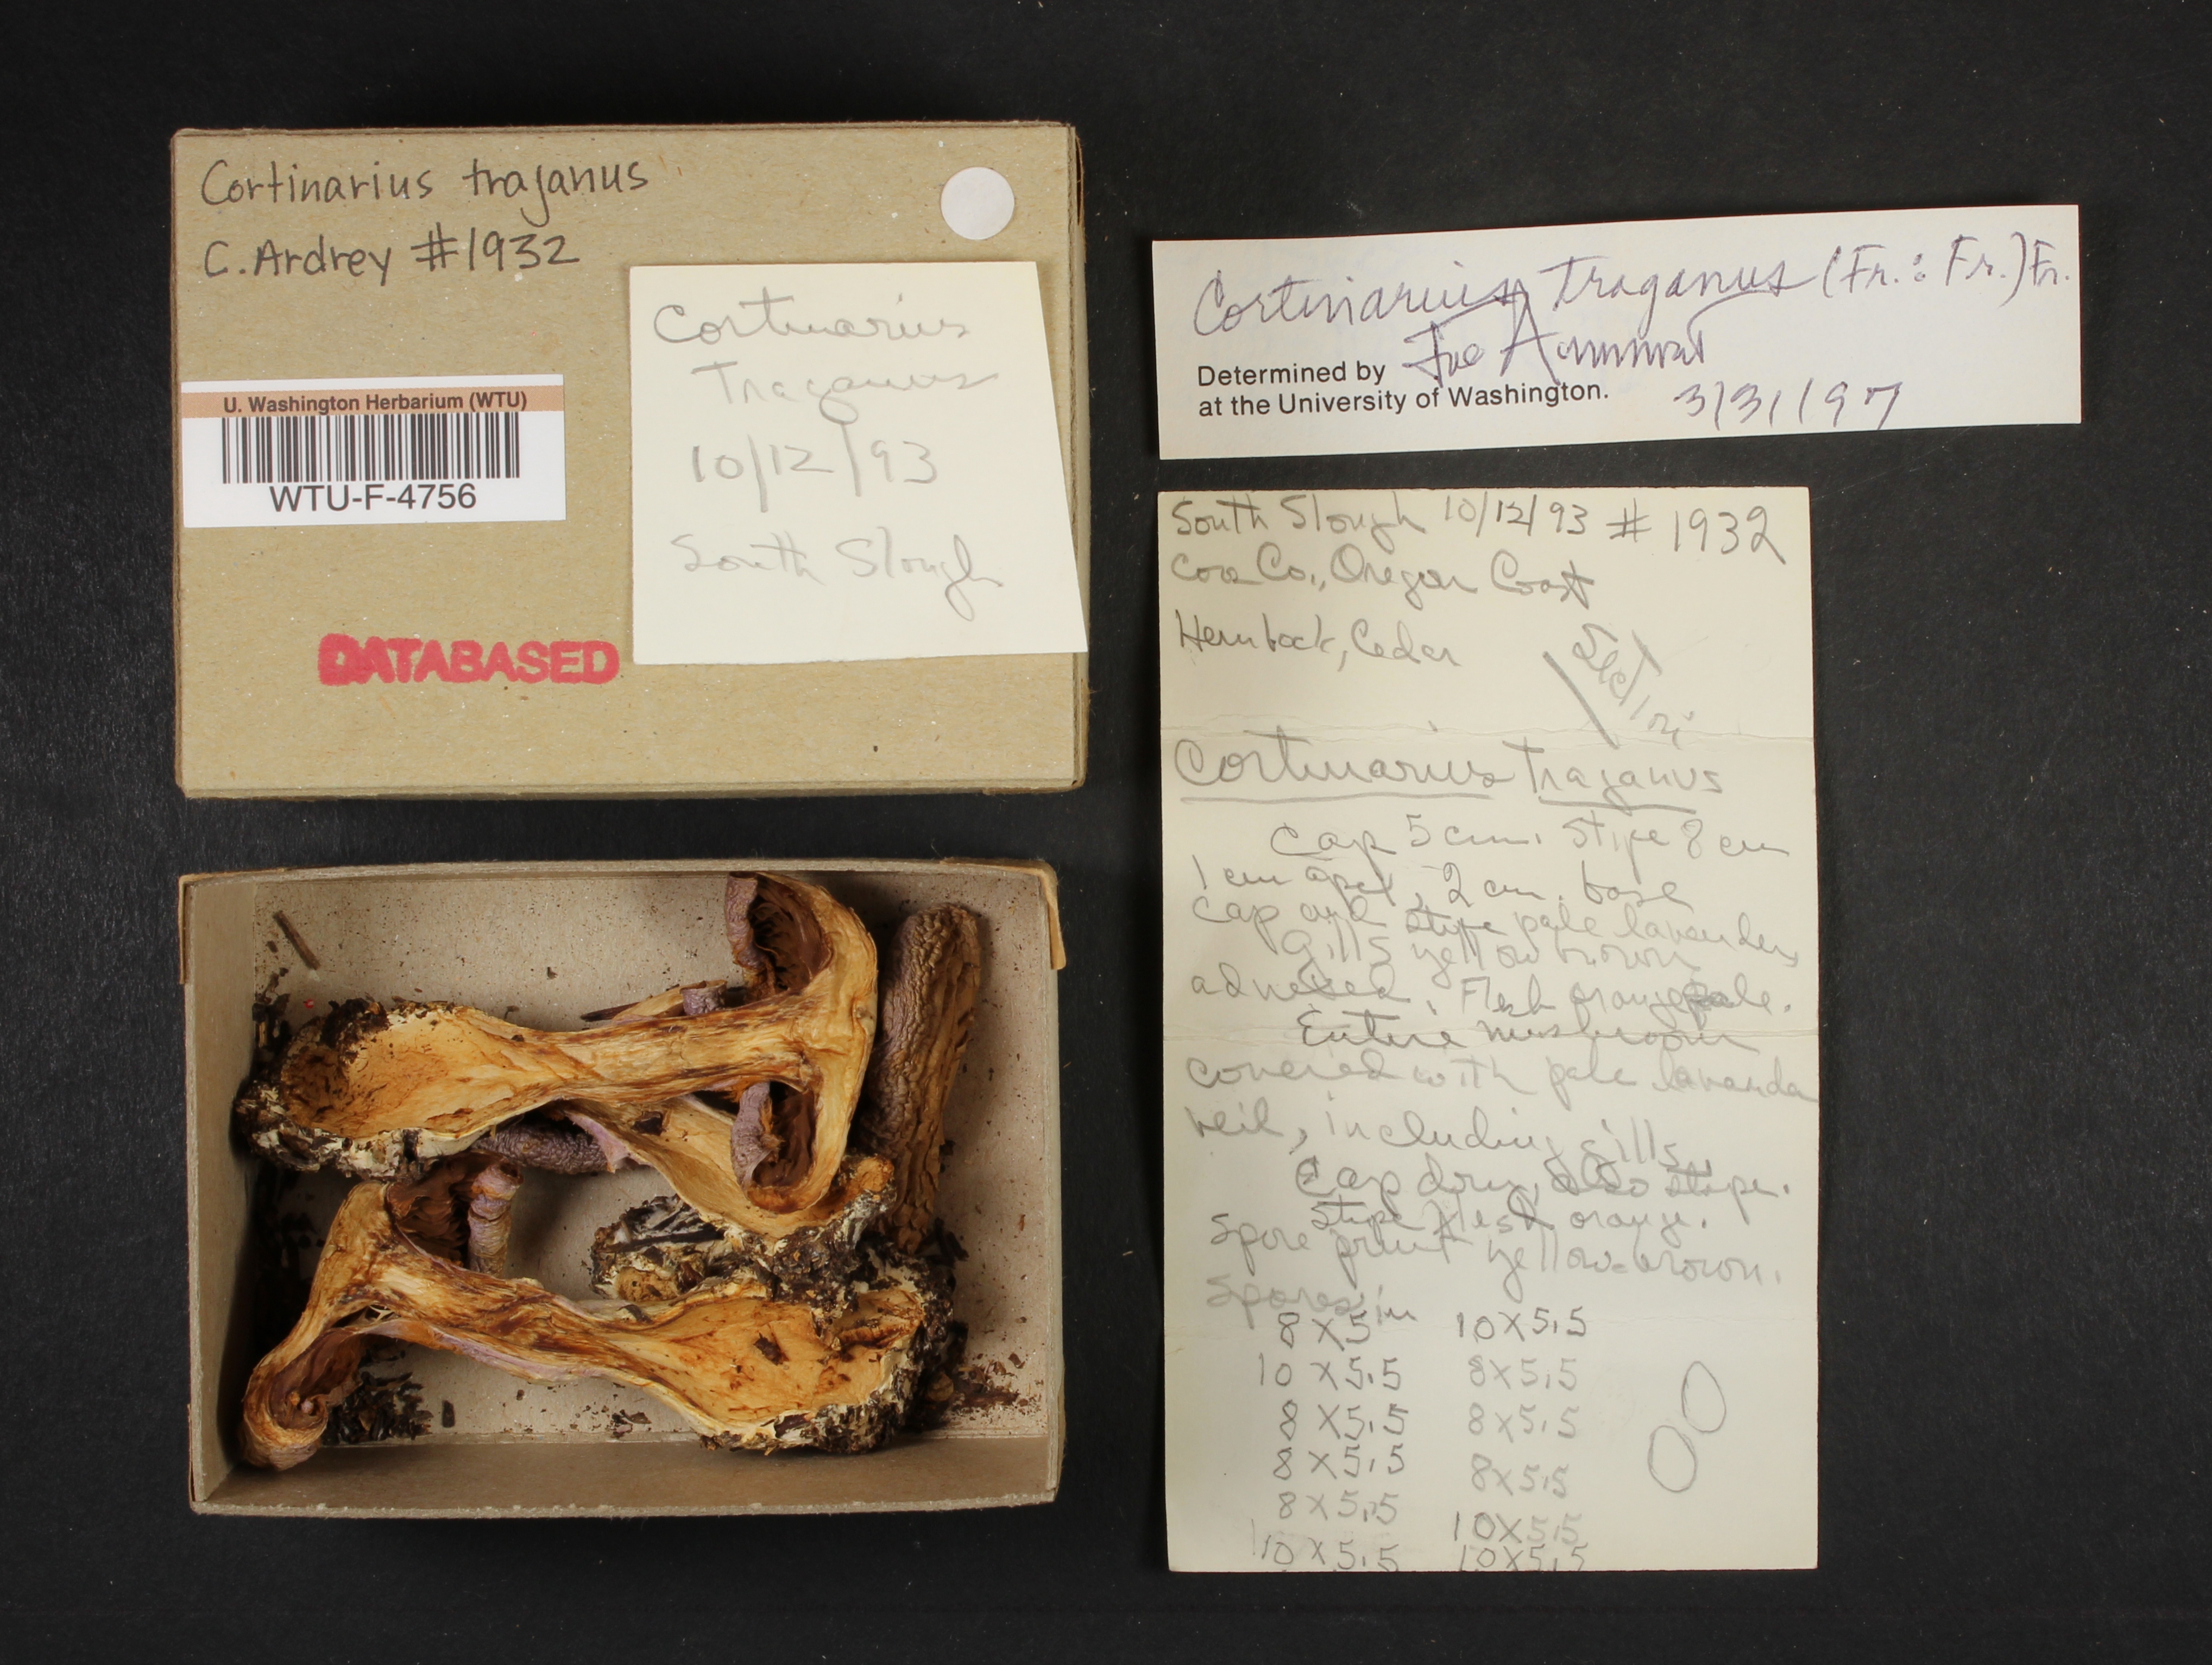 Cortinarius traganus
C. Ardrey #1932
U. Washington Herbarium (WTU)
WTU-F-4756
DATABASED
Cortinarius
Traganus
10/12/93
South Slough
Cortinarius traganus (Fr.: Fr.) Fr.
Joe Ammirati
Determined by
at the University of Washington.
3/31/97
South Slough 10/12/93 # 1932
Coos Co., Oregon Coast
Hemlock, Cedar
Cortinarius traganus
Cap 5 cm. Stipe 8 cm
1 cm apex, 2 cm. base
Cap and stipe pale lavender
Gills yellow brown
adnexed. Flesh orange pale.
Entire mushroom
covered with pale lavender
veil, including gills.
Cap dry, also stipe.
Stipe flesh orange.
Spore print yellow-brown.
Spores in
8 X 5 10 X 5.5
10 X 5.5 8 X 5.5
8 X 5.5 8 X 5.5
8 X 5.5 8 X 5.5
8 X 5.5 10 X 5.5
10 X 5.5 10 X 5.5